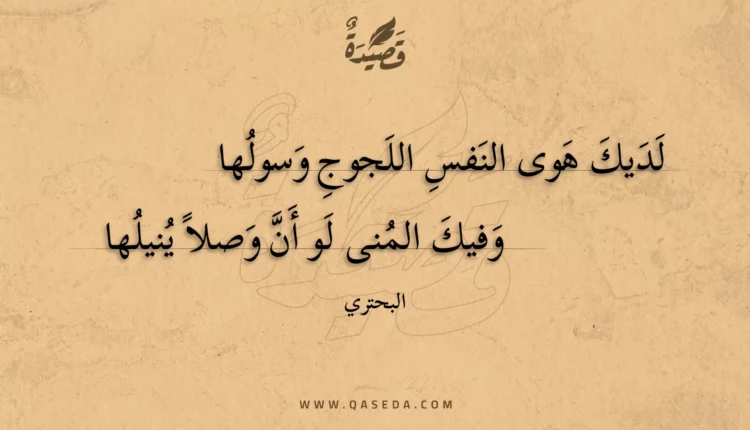 قَصِيْدَةٌ
لَدَيكَ هَوى النَفسِ اللَجوجِ وَسولُها
وَفيكَ المُنى لَو أَنَّ وَصلاً يُنيلُها
البحتري
WWW.QASEDA.COM